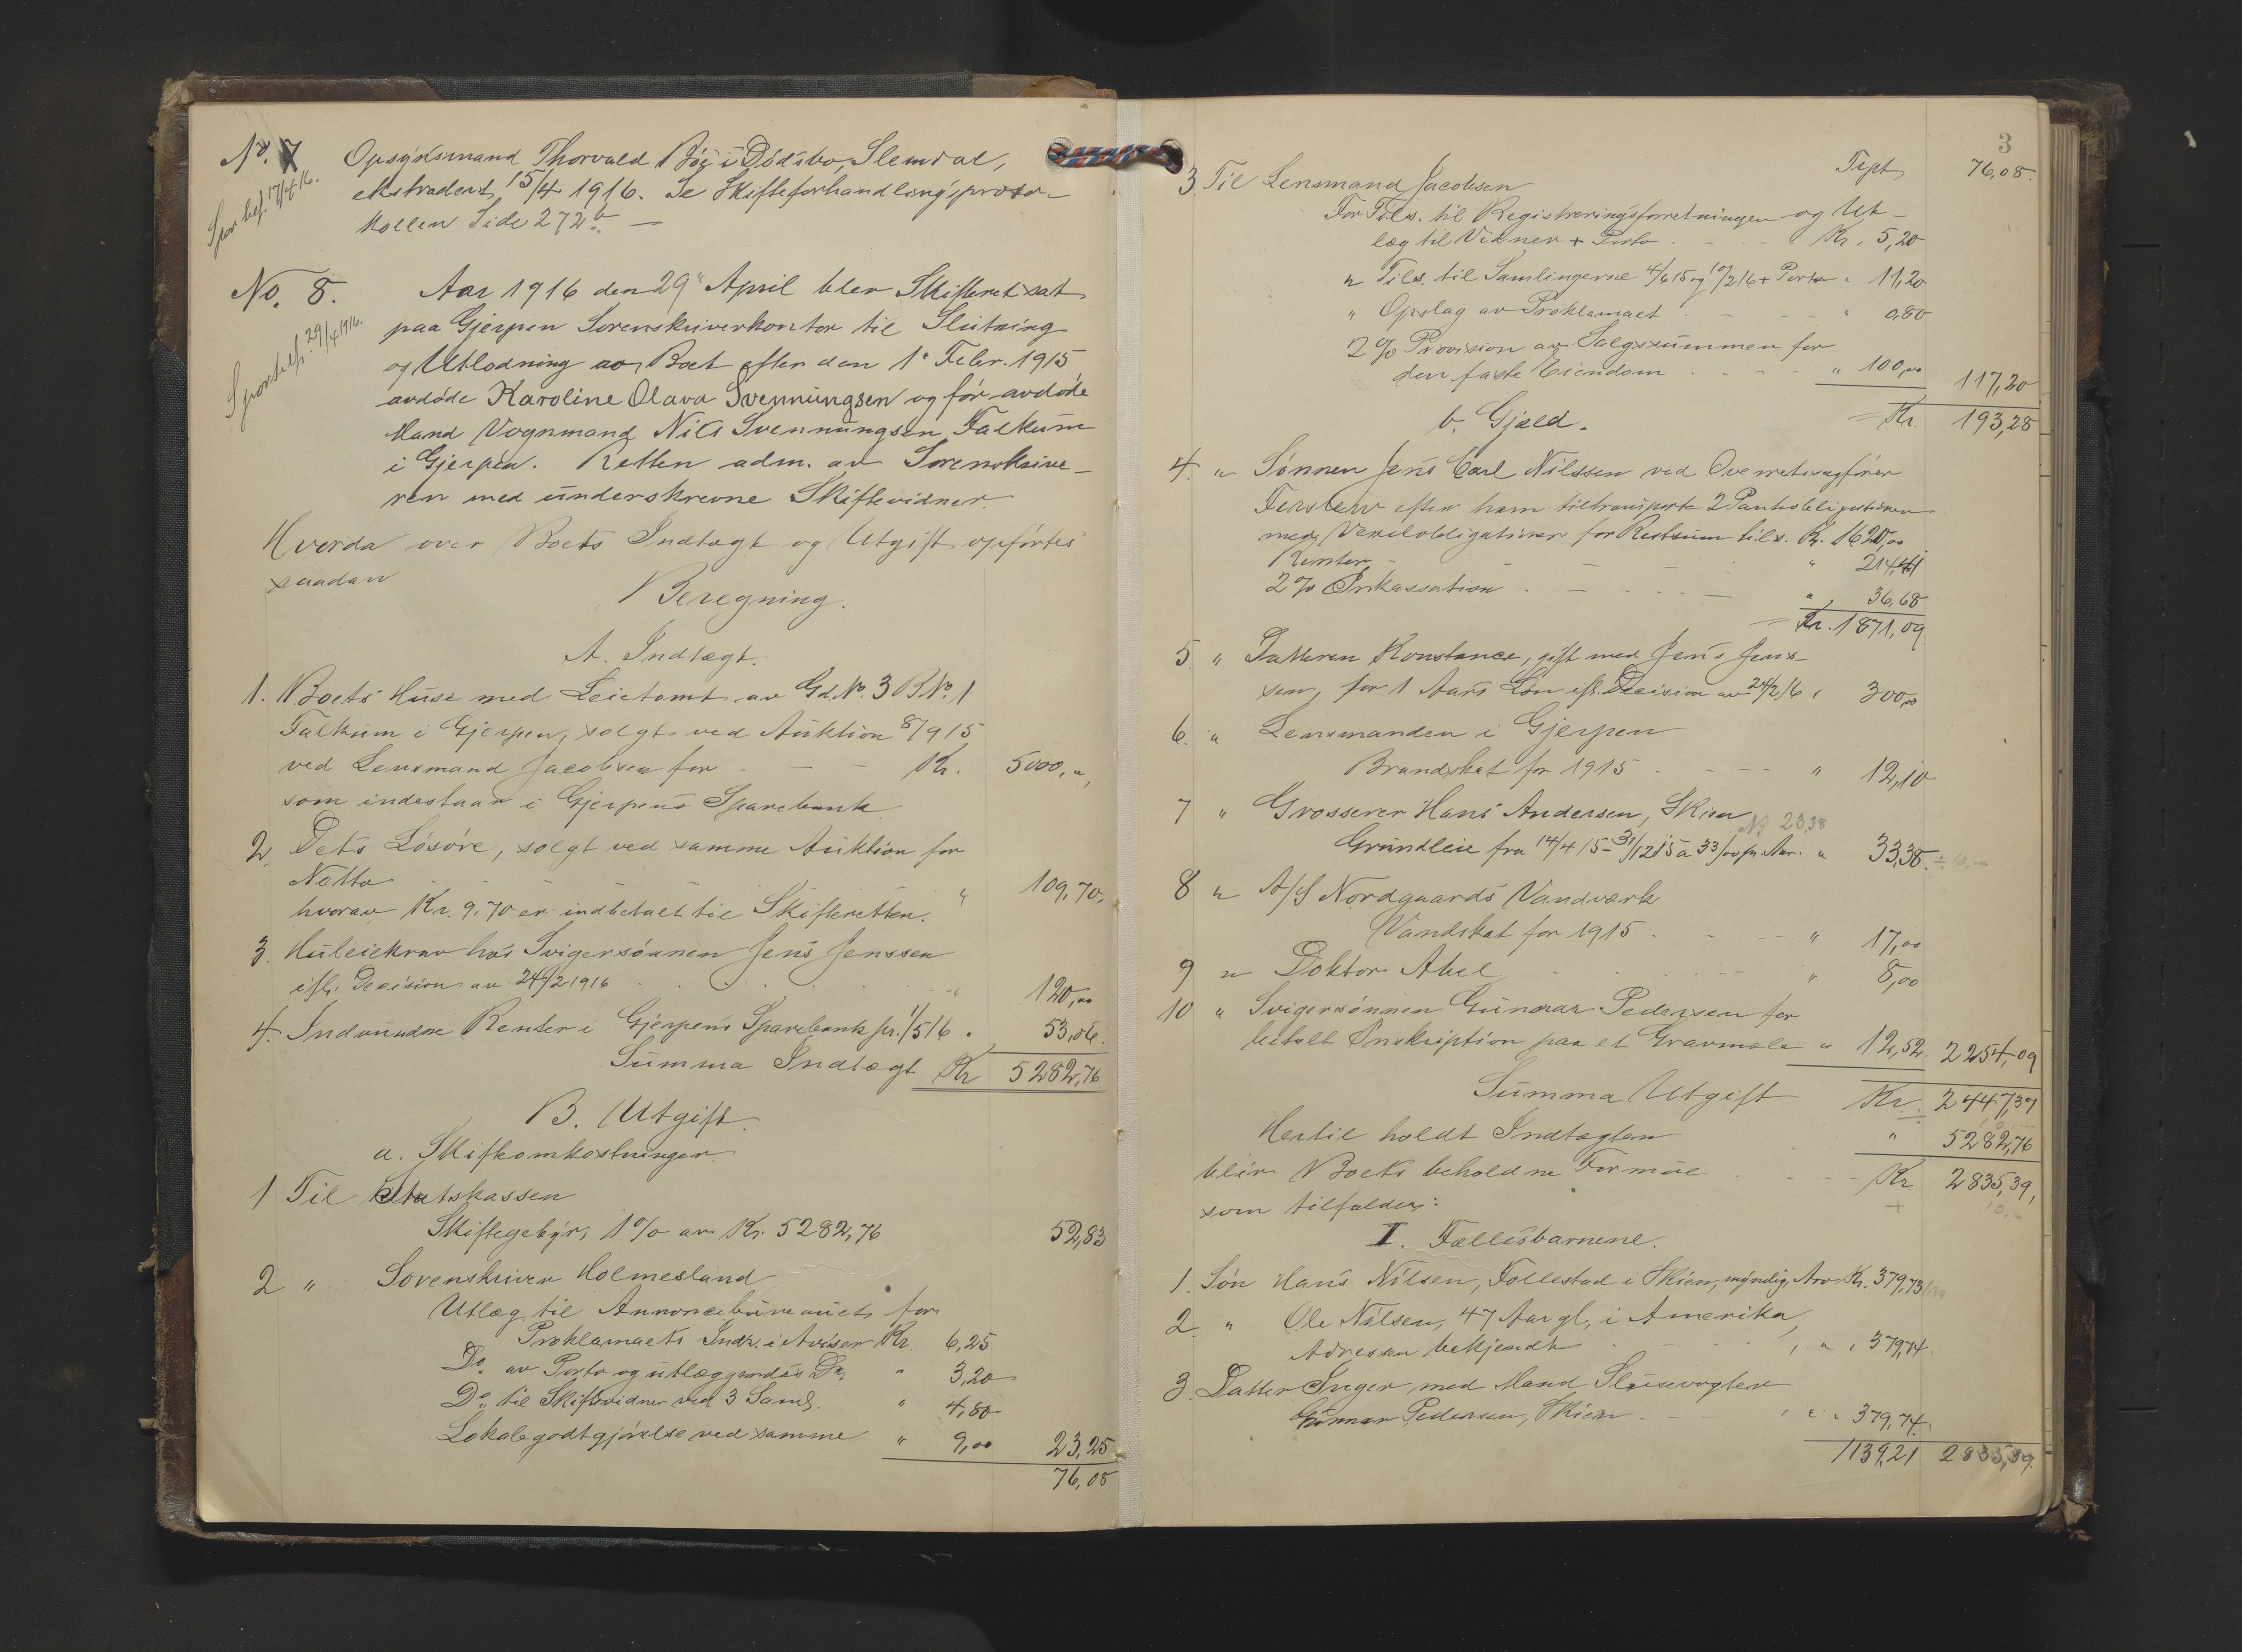 No. 7
Opsynsmand Thorvald Bøe's Dødsbo, Slemdal,
ekstradert 15/4 1916. Se Skifteforhandlingsproto-
kollen Side 272 b. —
Sportelbef. 17/4 16.
No. 8.
Aar 1916 den 29" April blev Skifteret sat
paa Gjerpen Sorenskriverkontor til Slutning
og Utlodning av Boet efter den 1' Febr. 1915
avdøde Karoline Olava Svennungsen og før avdøde
Mand Vognmand Nils Svennungsen Falkum
i Gjerpen. Retten adm. av Sorenskrive-
ren med underskrevne Skiftevidner.
Sportelbef. 29/4 1916.
Hvorda over Boets Indtægt og Utgift opførtes
saadan
Beregning.
A. Indtægt.
1. Boets Huse med Leietomt av Gd. No. 3 B. No. 1
Falkum i Gjerpen, solgt ved Auktion 8/9 15
ved Lensmand Jacobsen for - - Kr. 5000,",
som indestaar i Gjerpens Sparebank
2. Dets Løsøre, solgt ved samme Auktion for
Netto - - - " 109,70,
hvorav Kr. 9,70 er indbetalt til Skifteretten.
3. Husleiekrav hos Svigersønnen Jens Jenssen
ifl. Decision av 24/2 1916 - - " 120,00
4. Indvundne Renter i Gjerpens Sparebank pr. 1/5 16 " 53,06.
Summa Indtægt Kr 5282,76
B. Utgift.
a. Skifteomkostninger.
1 Til Statskassen
Skiftegebyr, 1% av Kr. 5282,76 52,83
2 " Sorenskriver Holmesland
Utlæg til Annoncebureauet for
Proklamaets Indr. i Aviser Kr. 6,25
Do. av Porto og utlæggendes Do. " 3,20
Do. til Skiftevidner ved 3 Saml. " 4,80
Lokalegodtgjørelse ved samme " 9,00 23,25
76,08
3
Tspt 76,08.
3 Til Lensmand Jacobsen
For Tils. til Registreringsforretningen og Ut-
læg til Vidner + Porto - - Kr. 5,20
" Tils. til Samlingerne 4/6 15 og 10/2 16 + Porto " 11,20
" Opslag av Proklamaet - - " 0,80
2% Provision av Salgssummen for
den faste Eiendom - - " 100,00 117,20
= Kr. 193,28
b. Gjæld.
4. " Sønnen Jens Carl Nilssen ved Overretssagfører
efter ham tiltransporte 2 Pantobligationer
med Vexelobligationer for Restsum tils. Kr. 1620,00
Renter - - - " 214,41
2% Inkassation - - - " 36,68
= Kr. 1871,09
5 " Datteren Konstance, gift med Jens Jens-
sen, for 1 Aars Løn ifl. Decision av 24/2 16 " 300,00
6. " Lensmanden i Gjerpen
Brandskat for 1915 - - " 12,10
7 " Grosserer Hans Andersen, Skien
23,38
Grundleie fra 14/4 15 - 31/12 15 a 33/00 pr. Aar. " 33,38. ÷ 10,00
8 " A/S Nordgaards Vandværk
Vandskat for 1915 - - " 17,00
9 " Doktor Abel - - " 8,00
10 " Svigersønnen Gunnar Pedersen for
betalt Inskription paa et Gravmæle " 12,52. 2254,09
Summa Utgift Kr. 2447,37
÷ 10
Hertil holdt Indtægten " 5282,76
blir Boets beholdne Formue - - Kr. 2835,39,
+ 10,-
som tilfalder:
I. Fællesbarnene.
1. Søn Hans Nilsen, Follestad i Skien, myndig, Arv Kr. 379,73
2. " Ole Nilsen, 47 Aar gl, i Amerika,
Adressen bekjendt - - , " , 379,74
3. Datter Inger med Mand Slusevogter
Gunnar Pedersen, Skien - - , " , 379,74.
1139,21 2835,39.